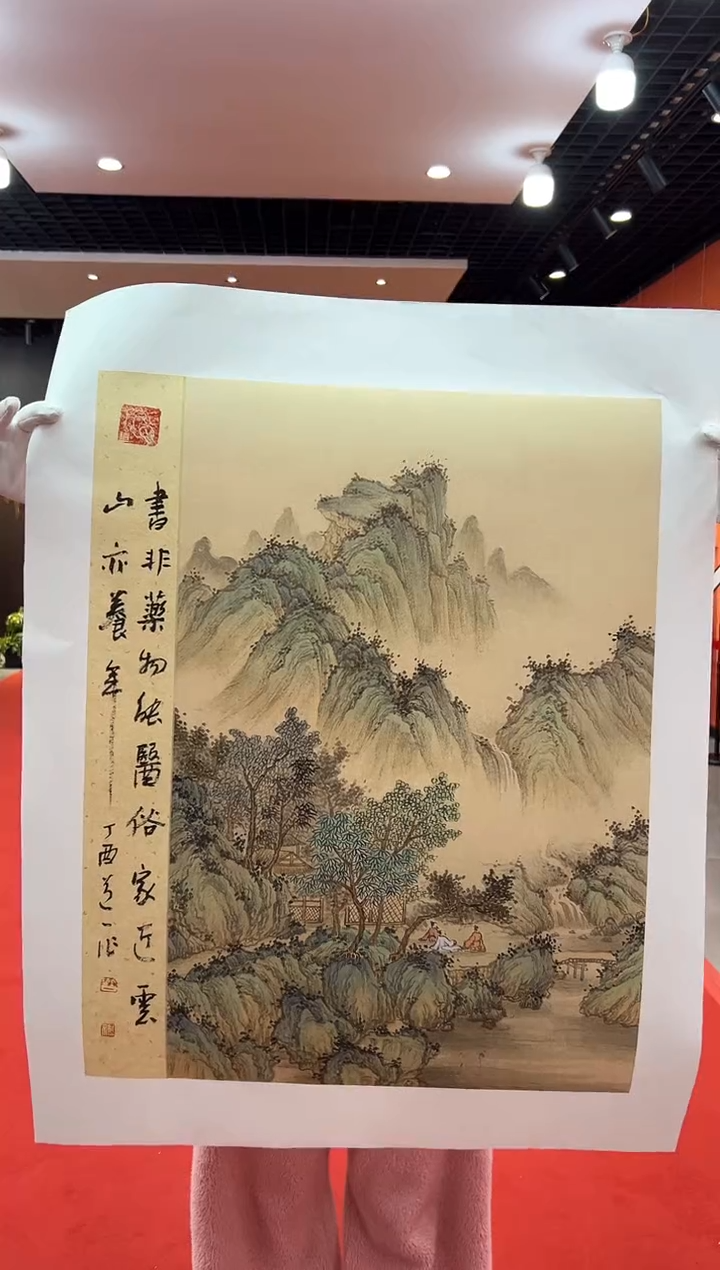 書非藥物能醫俗家近雲
山亦養年
丁酉道一作